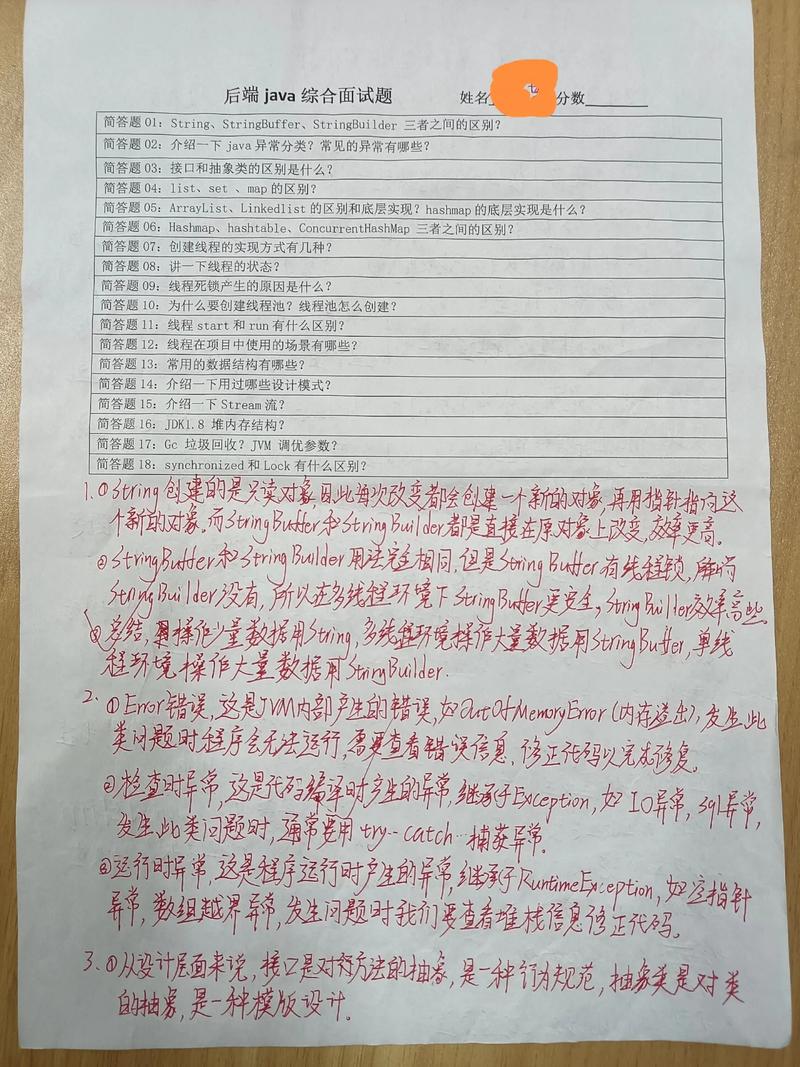 后端 java 综合面试题 姓名 分数
简答题 01: String、StringBuffer、StringBuilder 三者之间的区别?
简答题 02: 介绍一下 java 异常分类? 常见的异常有哪些?
简答题 03: 接口和抽象类的区别是什么?
简答题 04: list、set 、map 的区别?
简答题 05: ArrayList、Linkedlist 的区别和底层实现? hashmap 的底层实现是什么?
简答题 06: Hashmap、hashtable、ConcurrentHashMap 三者之间的区别?
简答题 07: 创建线程的实现方式有几种?
简答题 08: 讲一下线程的状态?
简答题 09: 线程死锁产生的原因是什么?
简答题 10: 为什么要创建线程池? 线程池怎么创建?
简答题 11: 线程 start 和 run 有什么区别?
简答题 12: 线程在项目中使用的场景有哪些?
简答题 13: 常用的数据结构有哪些?
简答题 14: 介绍一下用过哪些设计模式?
简答题 15: 介绍一下 Stream 流?
简答题 16: JDK1.8 堆内存结构?
简答题 17: Gc 垃圾回收? JVM 调优参数?
简答题 18: synchronized 和 Lock 有什么区别?
1. ①String 创建的是只读对象,因此每次改变都会创建一个新的对象,再用指针指向这
个新的对象。而StringBuffer和StringBuilder都是直接在原对象上改变,效率更高。
②StringBuffer和StringBuilder用法完全相同,但是StringBuffer有线程锁,
StringBuilder没有,所以在多线程环境下StringBuffer更安全,StringBuilder效率高些。
③总结,操作少量数据用String,多线程环境操作大量数据用StringBuffer,单线
程环境操作大量数据用StringBuilder.
2. ①Error错误,这是JVM内部产生的错误,如OutOfMemoryError(内存溢出),发生此
类问题时程序会无法运行,需要查看错误信息,修正代码以完成修复。
②检查时异常,这是代码编译时产生的异常,继承于Exception,如IO异常,sql异常,
发生此类问题时,通常要用try--catch--捕获异常.
③运行时异常,这是程序运行时产生的异常,继承于RuntimeException,如空指针
异常,数组越界异常,发生问题时我们要查看堆栈信息修正代码。
3. ①从设计层面来说,接口是对方法的抽象,是一种行为规范,抽象类是对类
的抽象,是一种模版设计.